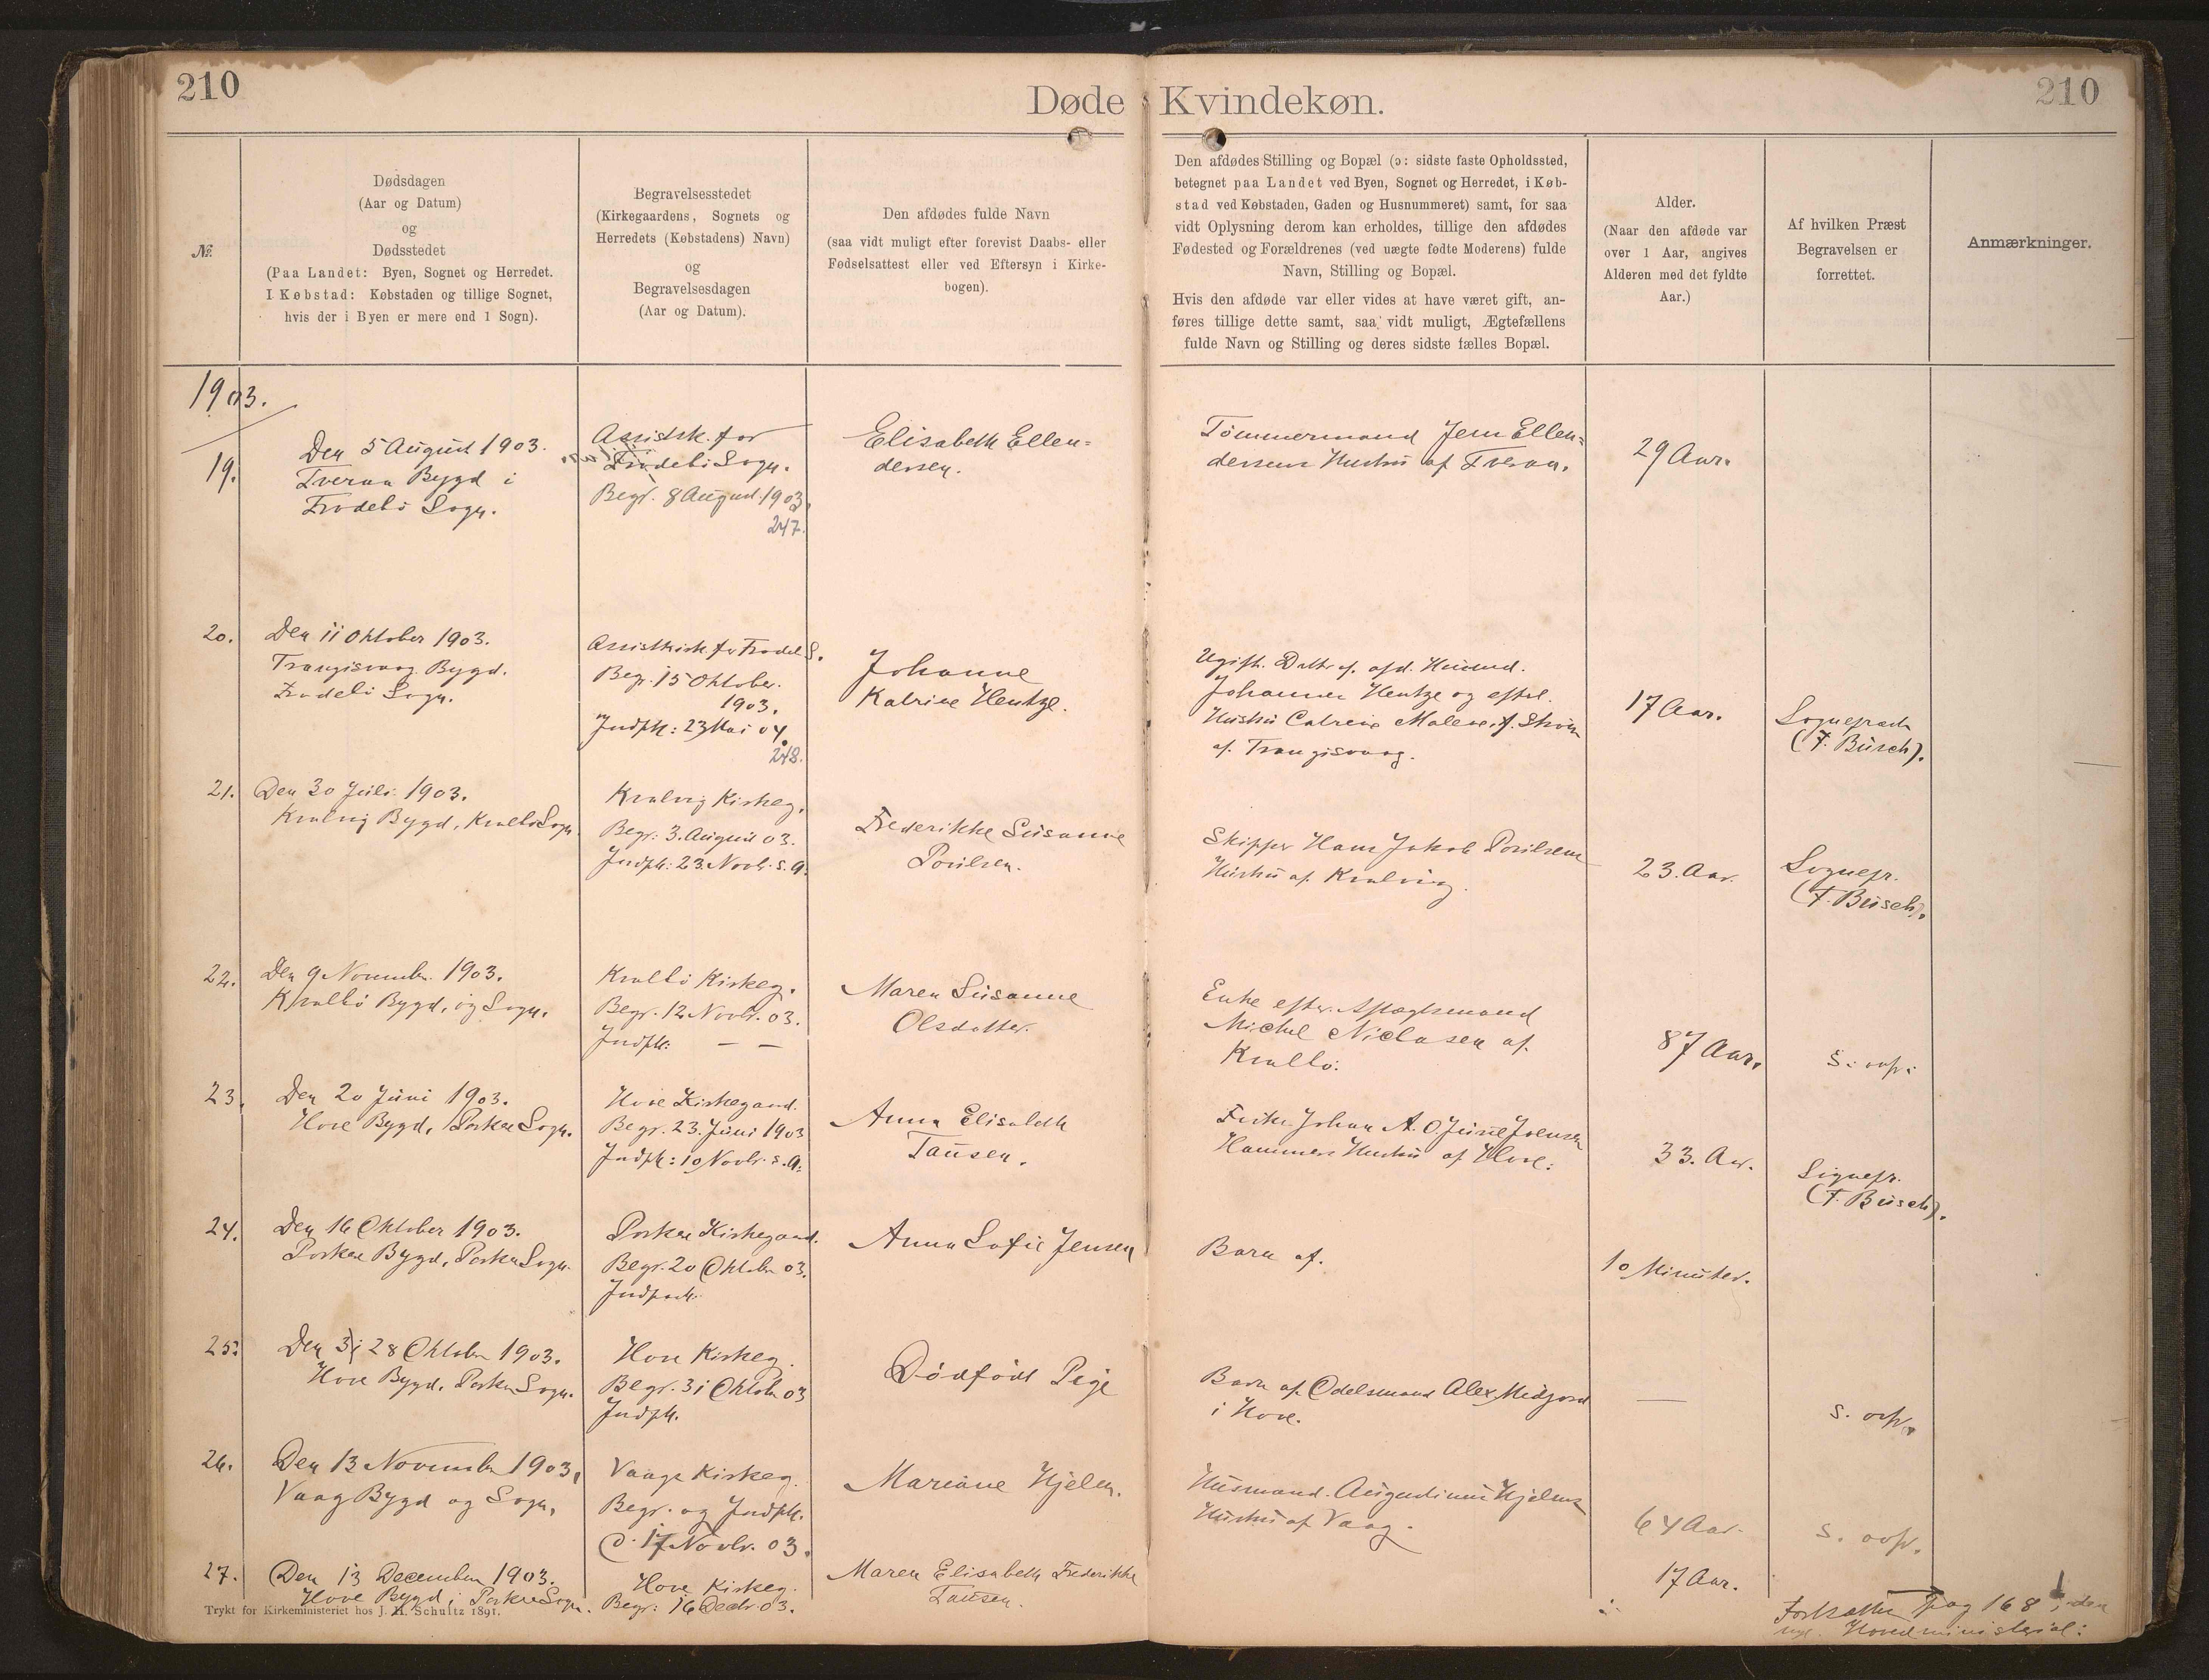 210
Døde Kvindekøn.
210
№
Dødsdagen
(Aar og Datum)
og
Dødsstedet
(Paa Landet: Byen, Sognet og Herredet.
I Købstad: Købstaden og tillige Sognet,
hvis der i Byen er mere end 1 Sogn).
Begravelsesstedet
(Kirkegaardens, Sognets og
Herredets (Købstadens) Navn)
og
Begravelsesdagen
(Aar og Datum).
Den afdødes fulde Navn
(saa vidt muligt efter forevist Daabs- eller
Fødselsattest eller ved Eftersyn i Kirke-
bogen).
Den afdødes Stilling og Bopæl (ɔ: sidste faste Opholdssted,
betegnet paa Landet ved Byen, Sognet og Herredet, i Køb-
stad ved Købstaden, Gaden og Husnummeret) samt, for saa
vidt Oplysning derom kan erholdes, tillige den afdødes
Fødested og Forældrenes (ved uægte fødte Moderens) fulde
Navn, Stilling og Bopæl.
Hvis den afdøde var eller vides at have været gift, an-
føres tillige dette samt, saa vidt muligt, Ægtefællens
fulde Navn og Stilling og deres sidste fælles Bopæl.
Alder.
(Naar den afdøde var
over 1 Aar, angives
Alderen med det fyldte
Aar.)
Af hvilken Præst
Begravelsen er
forrettet.
Anmærkninger.
1903.
19.
Den 5 August 1903.
Tveraa Bygd i
Frodebö Sogn.
Assistk. for
Frodebö Sogn.
Begr. 8 August 1903.
247.
Elisabeth Ellen=
dersen.
Tömmermand Jens Ellen=
dersens Hustru af Tveraa.
29 Aar.
20.
Den 11 Oktober 1903.
Trangisvaag Bygd.
Frodebö Sogn.
Assistkirk. for Frodeb. S.
Begr. 15 Oktober.
1903.
Jndpk: 23 Mai 04.
248.
Johanne
Katrine Hentze.
Ugift. Datter af. afd. Husmd.
Johannes Hentze og eftel.
Hustru Catrine Malene, f.
af. Trangisvaag.
17 Aar.
Sognepræst
(F. Busch).
21.
Den 30 Juli 1903.
Kvalvig Bygd, Kvalbö Sogn
Kvalvig Kirkeg.
Begr: 3. August 03.
Jndpk: 23. Novb. s. A.
Frederikke Susanne
Poulsen.
Skipper Hans Jakob Poulsens
Hustru af Kvalvig.
23. Aar.
Sognepr.
(F. Busch).
22.
Den 9 November 1903.
Kvalbö Bygd, og Sogn.
Kvalbö Kirkeg.
Begr. 12 Novb. 03.
Jndpk: — —
Maren Susanne
Olsdatter.
Enke efter. Aftægtsmand
Michel Niclasen af.
Kvalbö.
87 Aar.
s: ovf:
23.
Den 20 Juni 1903.
Hove Bygd, Porkere Sogn.
Hove Kirkegaard.
Begr. 23. Juni 1903
Jndpk: 10 Novb. s. A.
Anna Elisabeth
Tausen.
Johan A. O. Joensen
Hammers Hustru af Hove:
33. Aar.
Sognepr.
(F. Busch).
24.
Den 16 Oktober 1903.
Porkere Bygd, Porkere Sogn.
Porkere Kirkegaard.
Begr. 20 Oktober 03.
Jndpask.
Anna Sofie Jensen
Barn af.
10 Minuter.
25.
Den 28 Oktober 1903.
Hove Bygd, Porkere Sogn.
Hove Kirkeg.
Begr. 31 Oktober 03
Jndpk.
Dödfödt Pige
Barn af. Odelsmand Alex Midjord
i Hove.
—
s. ovf.
26.
Den 13 November 1903.
Vaag Bygd og Sogn.
Vaags Kirkeg.
Begr. og Jndpk.
d. 17 Novb. 03.
Mariane Hjelm.
Husmand. Augustinus Hjelms
Hustru af Vaag.
64 Aar.
s. ovf.
27.
Den 13 December 1903.
Hove Bygd i Porkere Sogn.
Hove Kirkeg.
Begr: 16 Decbr. 03.
Maren Elisabeth Frederikke
Tausen.
17 Aar.
Fortsættes Pag 168 i den
nye. Hovedministerial:
Trykt for Kirkeministeriet hos J. H. Schultz 1891.